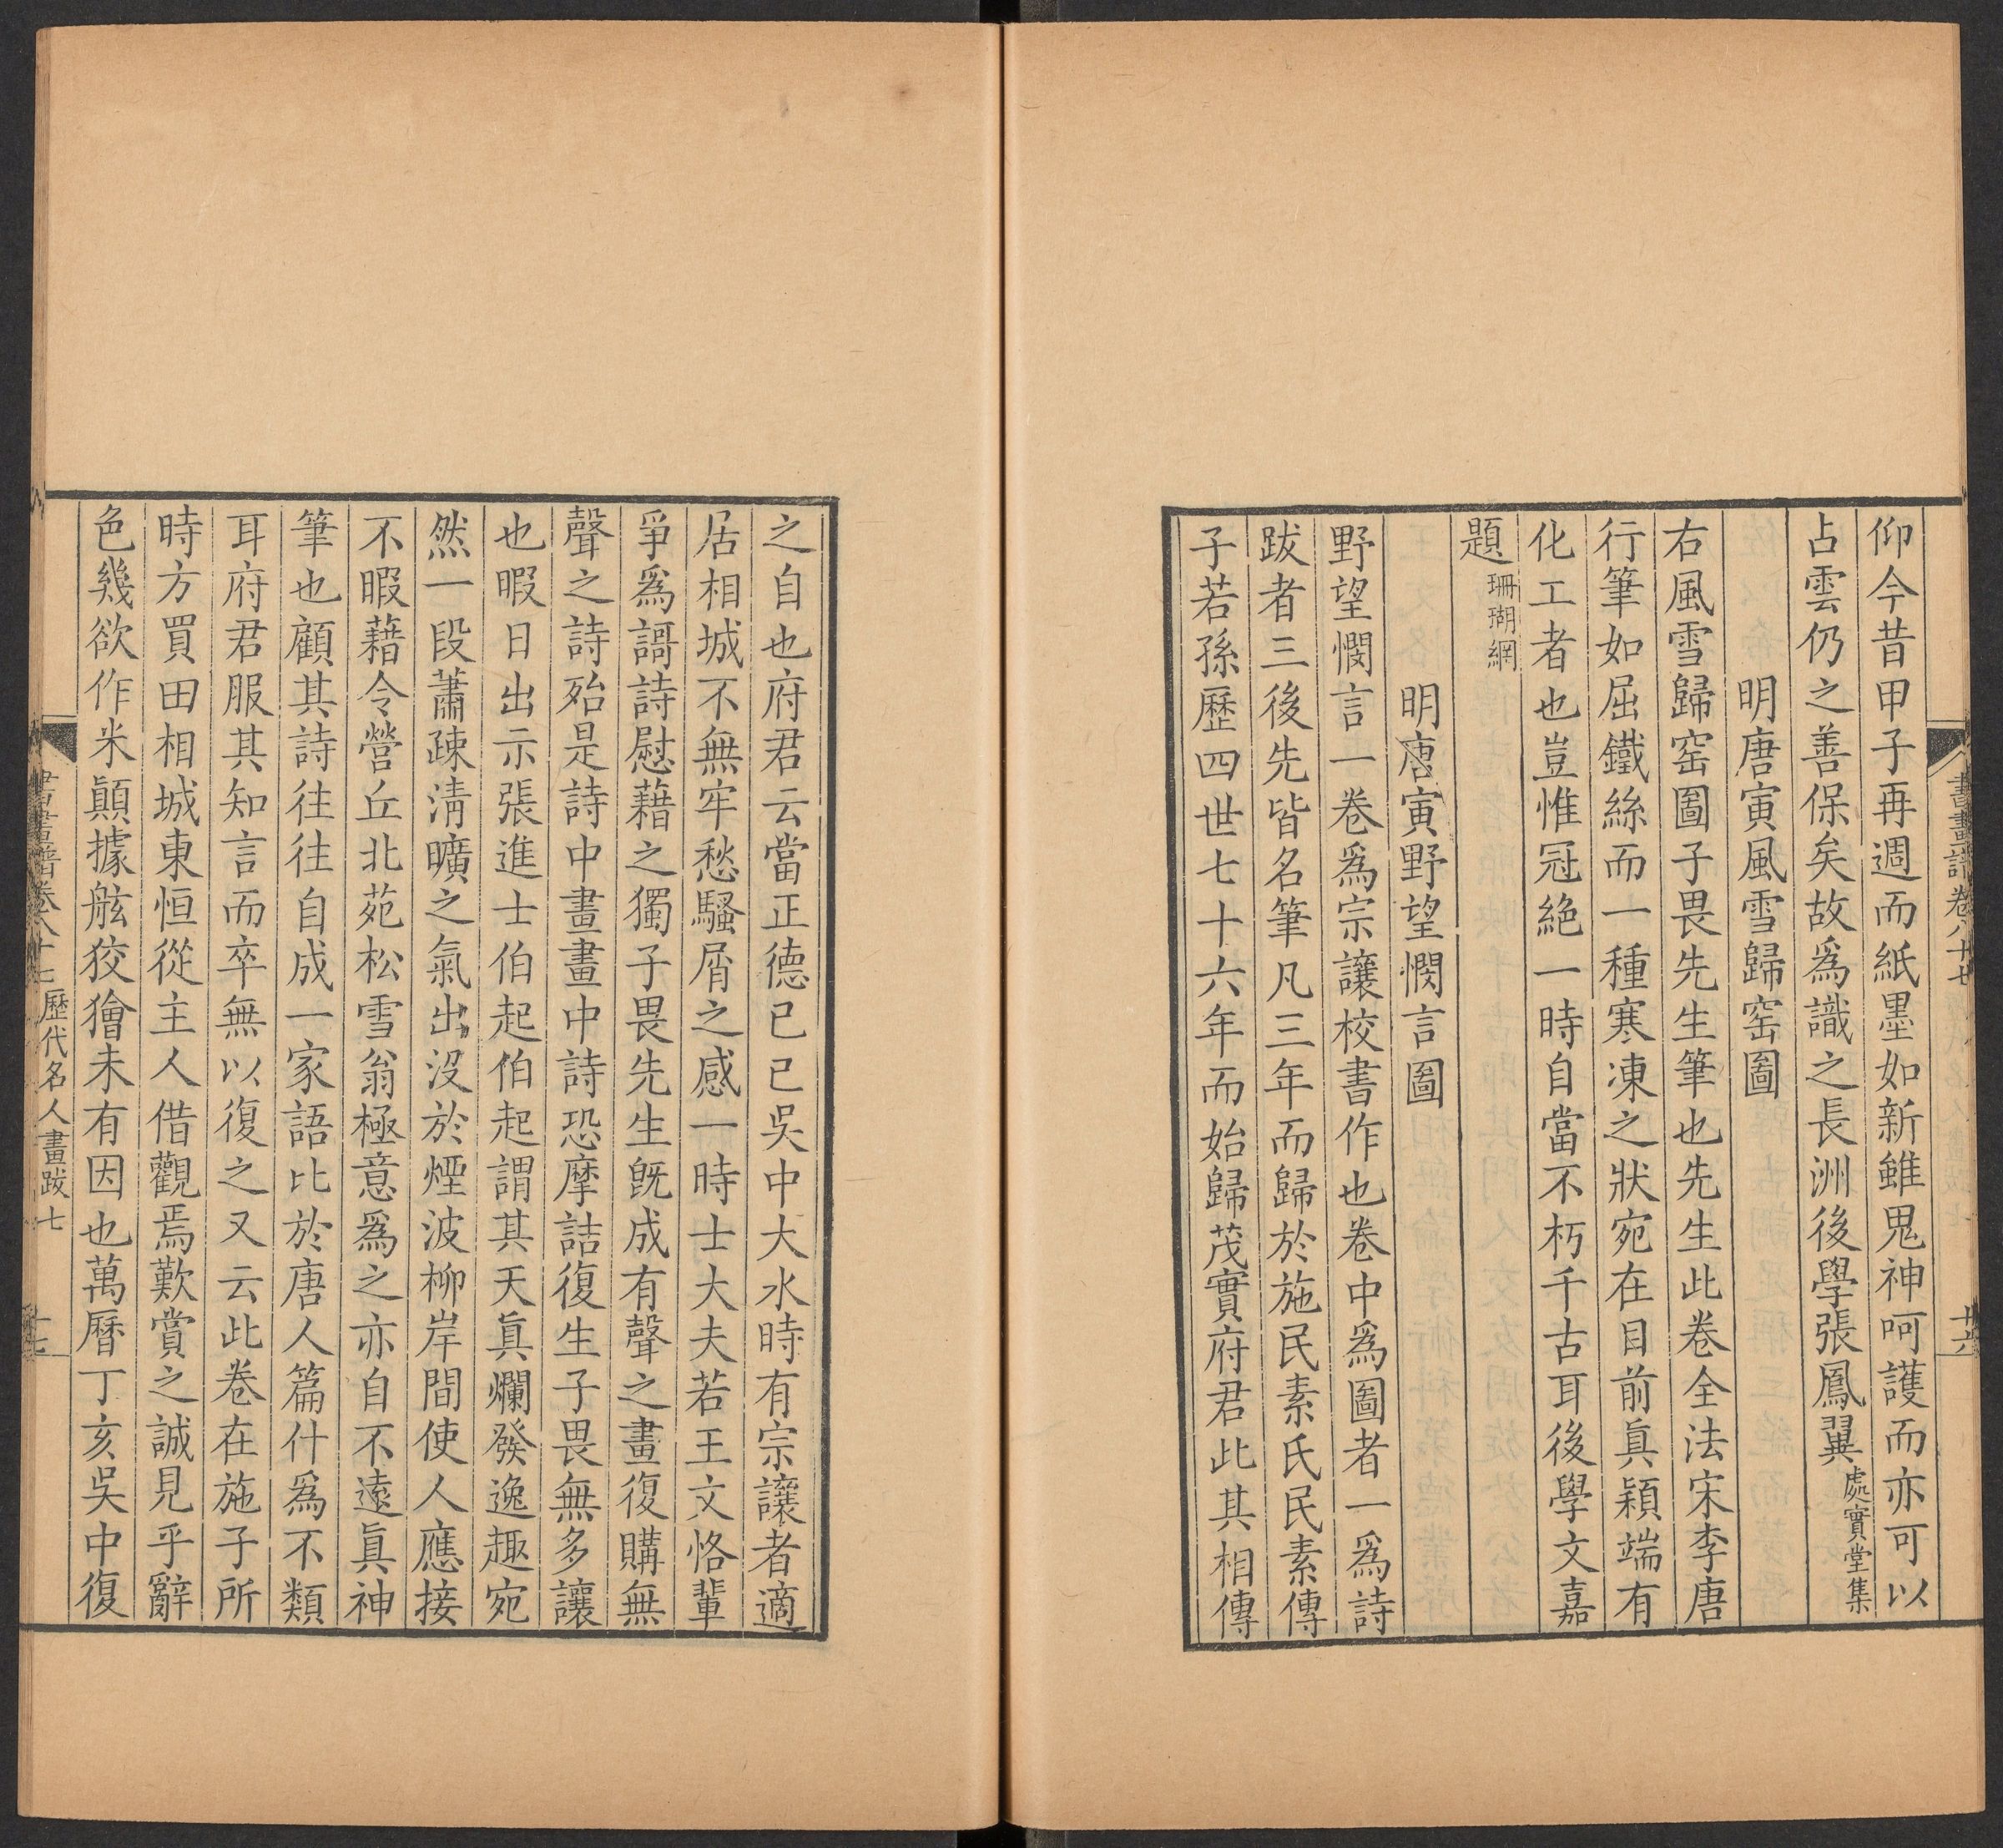 書畫譜卷八十七
十六
仰今昔甲子再週而紙墨如新雖鬼神呵護而亦可以
占雲仍之善保矣故爲識之長洲後學張鳳翼處實堂集
明唐寅風雪歸窑圖
右風雪歸窑圖子畏先生筆也先生此卷全法宋李唐
行筆如屈鐵絲而一種寒凍之狀宛在目前眞穎端有
化工者也豈惟冠絶一時自當不朽千古耳後學文嘉
題珊瑚網
明唐寅野望憫言圖
野望憫言一卷爲宗讓校書作也卷中爲圖者一爲詩
跋者三後先皆名筆凡三年而歸於施民素氏民素傳
子若孫歷四世七十六年而始歸茂實府君此其相傳
之自也府君云當正德已已吳中大水時有宗讓者適
居相城不無牢愁騷屑之感一時士大夫若王文恪輩
爭爲謌詩慰藉之獨子畏先生旣成有聲之畫復購無
聲之詩殆是詩中畫畫中詩恐摩詰復生子畏無多讓
也暇日出示張進士伯起伯起謂其天眞爛發逸趣宛
然一段蕭疎淸曠之氣出沒於煙波柳岸間使人應接
不暇藉令營丘北苑松雪翁極意爲之亦自不遠眞神
筆也顧其詩往往自成一家語比於唐人篇什爲不類
耳府君服其知言而卒無以復之又云此卷在施子所
時方買田相城東恒從主人借觀焉歎賞之誠見乎辭
色幾欲作米顚據舷狡獪未有因也萬曆丁亥吳中復
書畫譜卷八十七 歷代名人畫跋七
十七